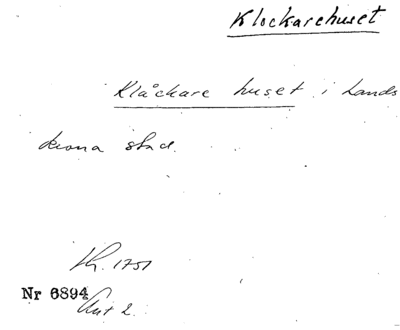 Klockarehuset
Klåckare huset i Lands
krona stad.
Kh. 1751
Nr 6894
Aut 2.